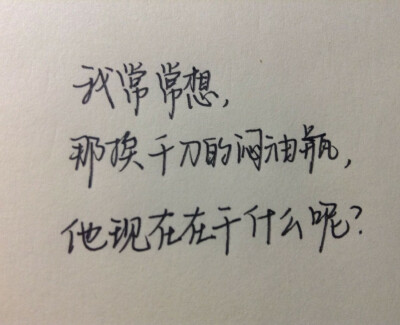 我常常想，
那挨千刀的闷油瓶，
他现在在干什么呢？